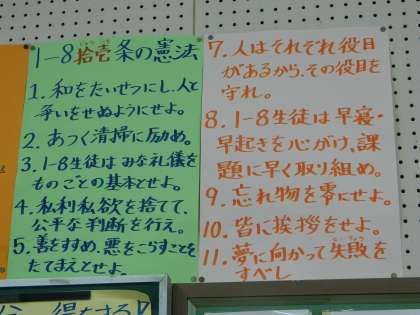 1-8拾壱条の憲法
1. 和をたいせつにし、人と
争いをせぬようにせよ。
2. あつく清掃に励め。
3. 1-8生徒はみな礼儀を
ものごとの基本とせよ。
4. 私利私欲を捨てて、
公平な判断を行え。
5. 善をすすめ、悪をこらすことを
たてまえとせよ。
7. 人はそれぞれ役目
があるから、その役目を
守れ。
8. 1-8生徒は早寝・
早起きを心がけ、課
題に早く取り組め。
9. 忘れ物を零にせよ。
10. 皆に挨拶をせよ。
11. 夢に向かって失敗を
すべし